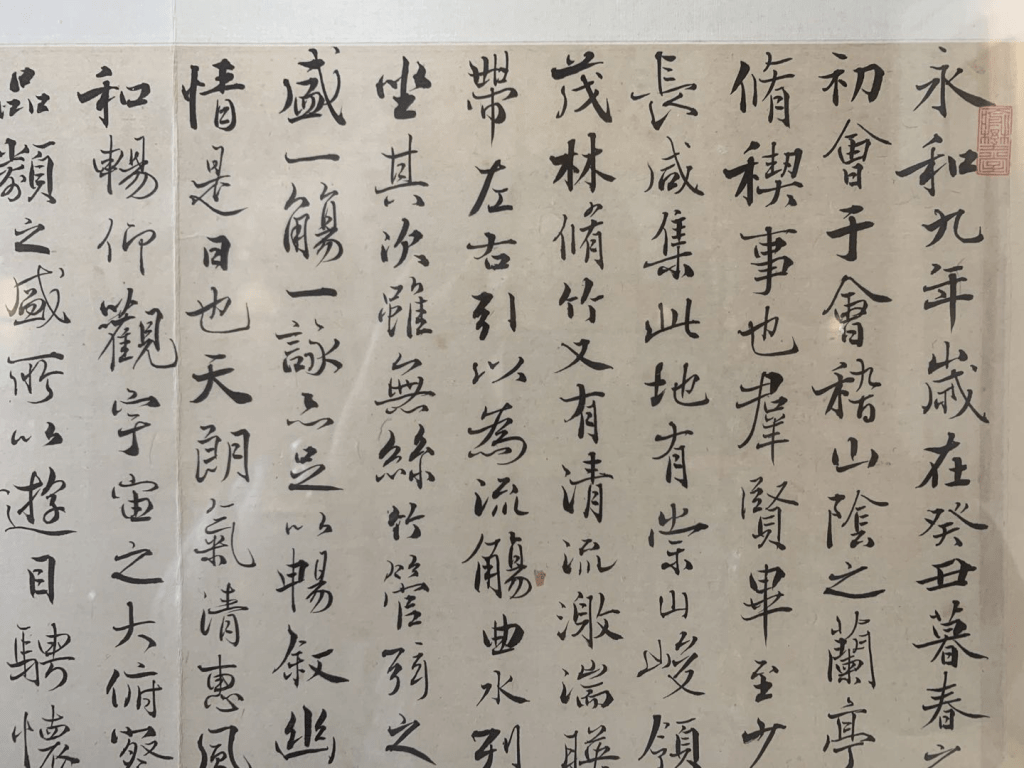 永和九年歲在癸丑暮春之
初會于會稽山陰之蘭亭
脩稧事也羣賢畢至少
長咸集此地有崇山峻領
茂林脩竹又有清流激湍暎
帶左右引以為流觴曲水列
坐其次雖無絲竹管弦之
盛一觴一詠亦足以暢敘幽
情是日也天朗氣清惠風
和暢仰觀宇宙之大俯察
品類之盛所以遊目騁懷